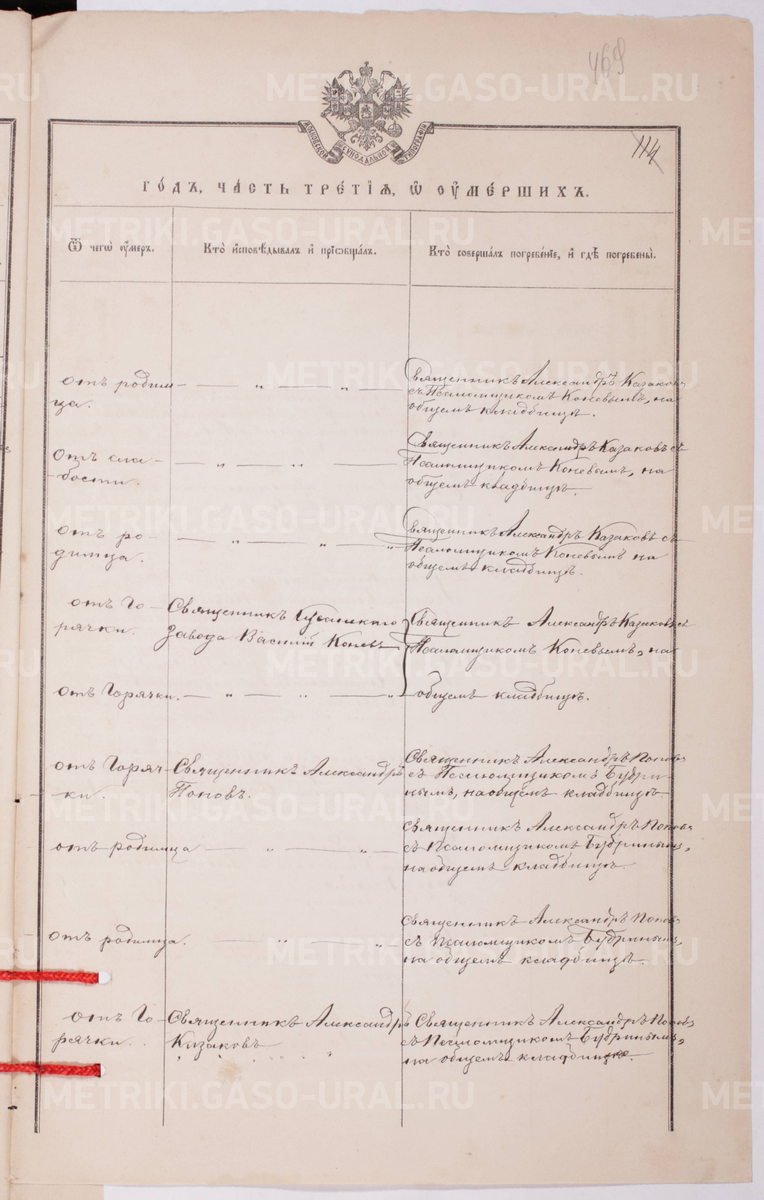 469
114
МОСКОВСКОЙ СѴНОДАЛЬНОЙ ТИПОГРАФІИ
ГОДЪ, ЧАСТЬ ТРЕТІЯ, Ѡ ОУМЕРШИХЪ.
Ѿ чегѡ оумеръ.
Кто исповѣдывалъ и пріобщалъ.
Кто совершалъ погребеніе, и гдѣ погребены.
отъ родим- — „ — „ — Священникъ Александръ Казаковъ
ца. съ Псаломщикомъ Коневымъ, на
общемъ кладбищѣ.
Отъ сла- — „ — „ — Священникъ Александръ Казаковъ съ
бости. Псаломщикомъ Коневымъ, на
общемъ кладбищѣ.
отъ ро- — „ — „ — „ Священникъ Александръ Казаковъ съ
димца. Псаломщикомъ Коневымъ на
общемъ кладбищѣ.
отъ Го- Священникъ Священникъ Александръ Казаковъ съ
рячки. завода Василій Коневъ Псаломщикомъ Коневымъ, на
отъ Горячки. — „ — „ — „ общемъ кладбищѣ.
отъ Горяч- Священникъ Александръ Священникъ Александръ Поповъ
ки. Поповъ. съ Псаломщикомъ Бубри-
нымъ, на общемъ кладбищѣ.
отъ родимца — „ — „ — Священникъ Александръ Поповъ
съ Псаломщикомъ Бубринымъ,
на общемъ кладбищѣ.
отъ родимца. — „ — „ Священникъ Александръ Поповъ
съ Псаломщикомъ Бубринымъ,
на общемъ кладбищѣ.
отъ Го- Священникъ Александръ Священникъ Александръ Поповъ
рячки. Казаковъ съ Псаломщикомъ Бубринымъ,
на общемъ кладбищѣ.
METRIKI.GASO-URAL.RU